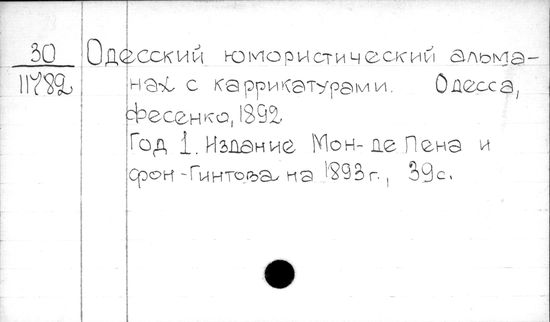 30
11782
Одесский юмористический альма-
нах с каррикатурами. Одесса,
Фесенко, 1892
Год 1. Издание Мон-де Пена и
фон-Гинтова на 1893 г., 39с.